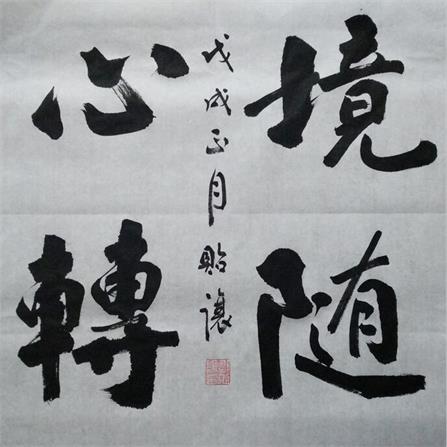 境随
心轉
戊戌正月貽讓